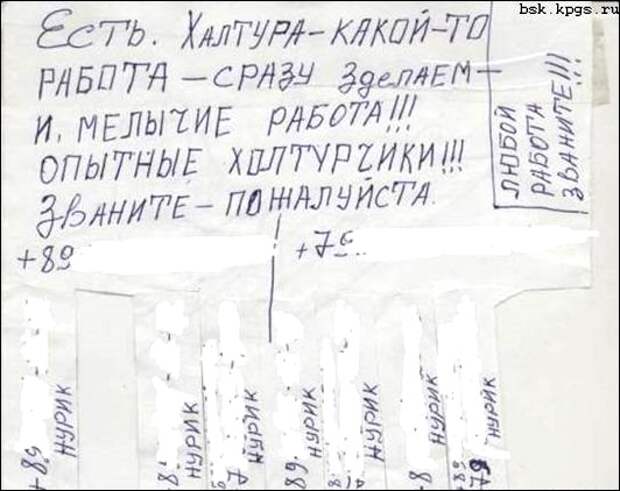 bsk.kpgs.ru
Есть. Халтура-какой-то
работа - сразу зделаем-
и, мелычие работа!!!
опытные холтурчики!!!
званите - пожалуйста.
любой
работа
званите!!!
+89
+79
+89 Нурик
8 Нурик
Нурик
89 Нурик
Нурик
8 Нурик
89
+79 Нурик